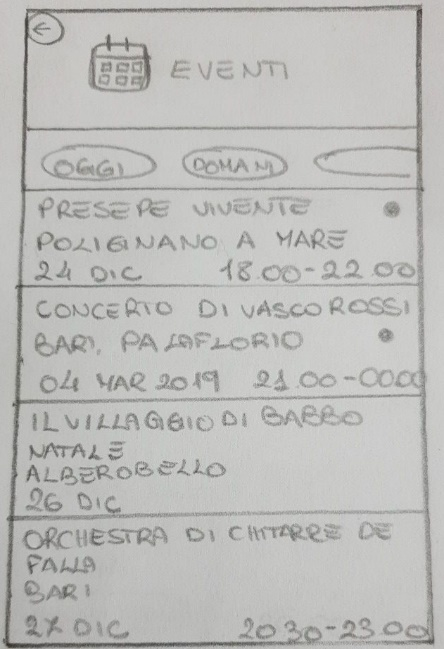 EVENTI
OGGI DOMANI
PRESEPE VIVENTE
POLIGNANO A MARE
24 DIC 18.00-22.00
CONCERTO DI VASCO ROSSI
BARI, PALAFLORIO
04 MAR 2019 21.00-00.00
IL VILLAGGIO DI BABBO
NATALE
ALBEROBELLO
26 DIC
ORCHESTRA DI CHITARRE DE
FALLA
BARI
27 DIC 20.30-23.00